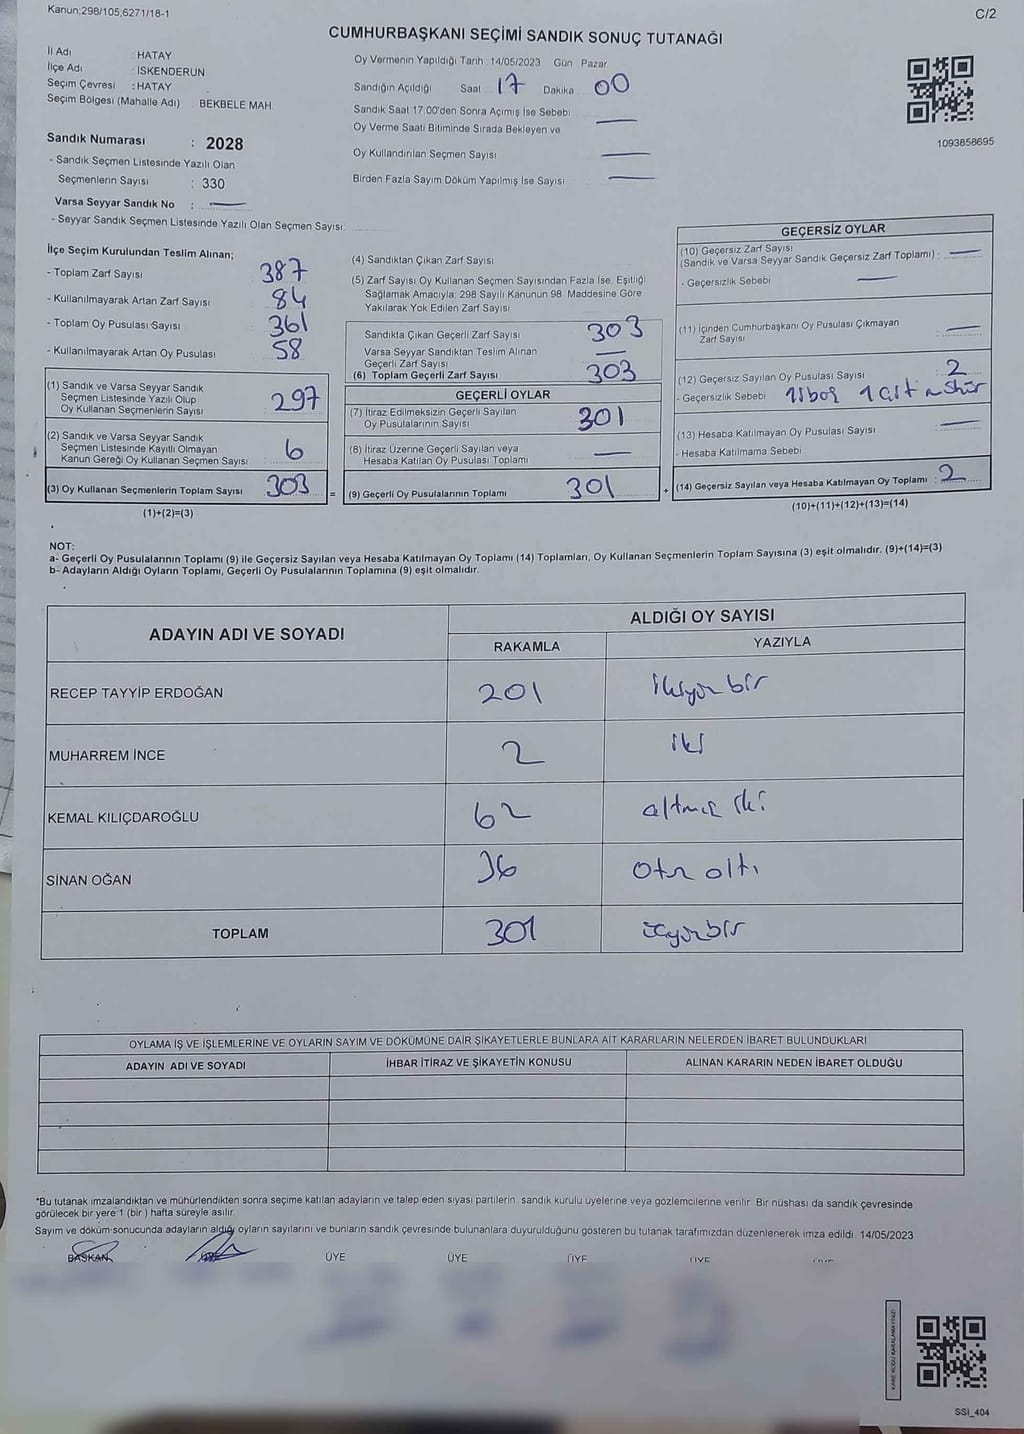 Kanun;298/105,6271/18-1
C/2
CUMHURBAŞKANI SEÇİMİ SANDIK SONUÇ TUTANAĞI
İl Adı : HATAY
İlçe Adı : İSKENDERUN
Seçim Çevresi : HATAY
Seçim Bölgesi (Mahalle Adı) BEKBELE MAH
Sandık Numarası : 2028
- Sandık Seçmen Listesinde Yazılı Olan
Seçmenlerin Sayısı : 330
Varsa Seyyar Sandık No : —
- Seyyar Sandık Seçmen Listesinde Yazılı Olan Seçmen Sayısı:
Oy Vermenin Yapıldığı Tarih : 14/05/2023 Gün Pazar
Sandığın Açıldığı Saat 17 Dakika 00
Sandık Saat 17:00'den Sonra Açımış İse Sebebi —
Oy Verme Saati Bitiminde Sırada Bekleyen ve
Oy Kullandırılan Seçmen Sayısı —
Birden Fazla Sayım Döküm Yapılmış İse Sayısı —
1093858695
İlçe Seçim Kurulundan Teslim Alınan;
- Toplam Zarf Sayısı 387
- Kullanılmayarak Artan Zarf Sayısı 84
- Toplam Oy Pusulası Sayısı 361
- Kullanılmayarak Artan Oy Pusulası 58
(1) Sandık ve Varsa Seyyar Sandık
Seçmen Listesinde Yazılı Olup
Oy Kullanan Seçmenlerin Sayısı 297
(2) Sandık ve Varsa Seyyar Sandık
Seçmen Listesinde Kayıtlı Olmayan
Kanun Gereği Oy Kullanan Seçmen Sayısı 6
(3) Oy Kullanan Seçmenlerin Toplam Sayısı 303
(1)+(2)=(3)
=
(4) Sandıktan Çıkan Zarf Sayısı
(5) Zarf Sayısı Oy Kullanan Seçmen Sayısından Fazla İse, Eşitliği
Sağlamak Amacıyla; 298 Sayılı Kanunun 98. Maddesine Göre
Yakılarak Yok Edilen Zarf Sayısı
Sandıkta Çıkan Geçerli Zarf Sayısı 303
Varsa Seyyar Sandıktan Teslim Alınan
Geçerli Zarf Sayısı —
(6) Toplam Geçerli Zarf Sayısı 303
GEÇERLİ OYLAR
(7) İtiraz Edilmeksizin Geçerli Sayılan
Oy Pusulalarının Sayısı 301
(8) İtiraz Üzerine Geçerli Sayılan veya
Hesaba Katılan Oy Pusulası Toplamı —
(9) Geçerli Oy Pusulalarının Toplamı 301
+
GEÇERSİZ OYLAR
(10) Geçersiz Zarf Sayısı
(Sandık ve Varsa Seyyar Sandık Geçersiz Zarf Toplamı) : —
- Geçersizlik Sebebi —
(11) İçinden Cumhurbaşkanı Oy Pusulası Çıkmayan
Zarf Sayısı : —
(12) Geçersiz Sayılan Oy Pusulası Sayısı : 2
- Geçersizlik Sebebi
(13) Hesaba Katılmayan Oy Pusulası Sayısı : —
- Hesaba Katılmama Sebebi
(14) Geçersiz Sayılan veya Hesaba Katılmayan Oy Toplamı : 2
(10)+(11)+(12)+(13)=(14)
NOT:
a- Geçerli Oy Pusulalarının Toplamı (9) ile Geçersiz Sayılan veya Hesaba Katılmayan Oy Toplamı (14) Toplamları, Oy Kullanan Seçmenlerin Toplam Sayısına (3) eşit olmalıdır. (9)+(14)=(3)
b- Adayların Aldığı Oyların Toplamı, Geçerli Oy Pusulalarının Toplamına (9) eşit olmalıdır.
ADAYIN ADI VE SOYADI
ALDIĞI OY SAYISI
RAKAMLA YAZIYLA
RECEP TAYYİP ERDOĞAN 201 ikiyüz bir
MUHARREM İNCE 2 iki
KEMAL KILIÇDAROĞLU 62 altmış iki
SİNAN OĞAN 36 Otuz altı
TOPLAM 301 üçyüz bir
OYLAMA İŞ VE İŞLEMLERİNE VE OYLARIN SAYIM VE DÖKÜMÜNE DAİR ŞİKAYETLERLE BUNLARA AİT KARARLARIN NELERDEN İBARET BULUNDUKLARI
ADAYIN ADI VE SOYADI İHBAR İTİRAZ VE ŞİKAYETİN KONUSU ALINAN KARARIN NEDEN İBARET OLDUĞU
*Bu tutanak imzalandıktan ve mühürlendikten sonra seçime katılan adayların ve talep eden siyasi partilerin sandık kurulu üyelerine veya gözlemcilerine verilir. Bir nüshası da sandık çevresinde
görülecek bir yere 1 (bir) hafta süreyle asılır.
Sayım ve döküm sonucunda adayların aldığı oyların sayılarını ve bunların sandık çevresinde bulunanlara duyurulduğunu gösteren bu tutanak tarafımızdan düzenlenerek imza edildi 14/05/2023
BAŞKAN ÜYE ÜYE ÜYE ÜYE ÜYE
KARE KODU KARALAMAYINIZ!
SSI_404